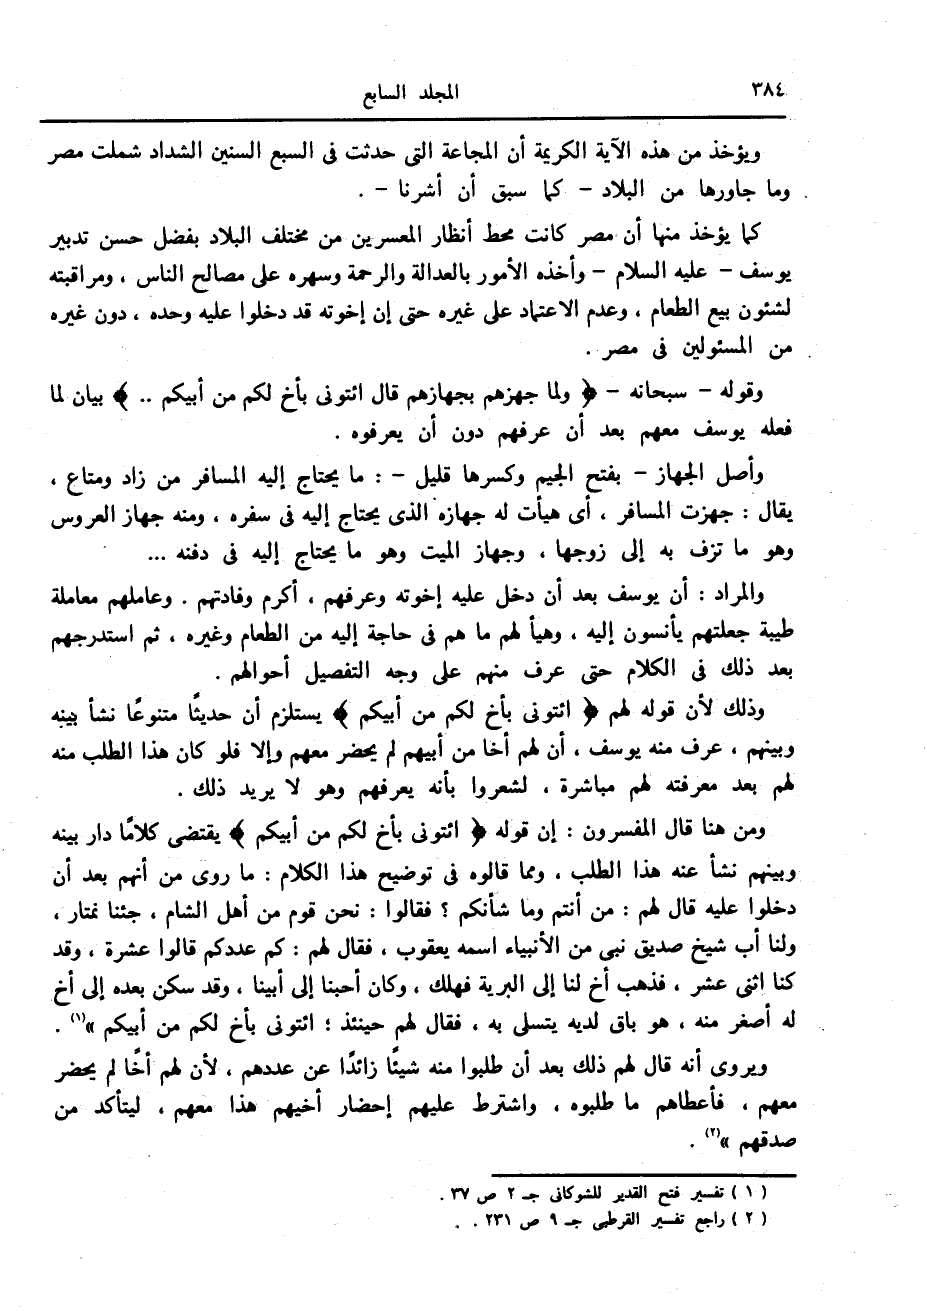 ٣٨٤
المجلد السابع
ويؤخذ من هذه الآية الكريمة أن المجاعة التى حدثت فى السبع السنين الشداد شملت مصر
وما جاورها من البلاد – كما سبق أن أشرنا – .
كما يؤخذ منها أن مصر كانت محط أنظار المعسرين من مختلف البلاد بفضل حسن تدبير
يوسف – عليه السلام – وأخذه الأمور بالعدالة والرحمة وسهره على مصالح الناس ، ومراقبته
لشئون بيع الطعام ، وعدم الاعتماد على غيره حتى إن إخوته قد دخلوا عليه وحده ، دون غيره
من المسئولين فى مصر .
وقوله – سبحانه – ﴿ ولما جهزهم بجهازهم قال ائتونى بأخ لكم من أبيكم .. ﴾ بيان لما
فعله يوسف معهم بعد أن عرفهم دون أن يعرفوه .
وأصل الجهاز – بفتح الجيم وكسرها قليل – : ما يحتاج إليه المسافر من زاد ومتاع ،
يقال : جهزت المسافر ، أى هيأت له جهازه الذى يحتاج إليه فى سفره ، ومنه جهاز العروس
وهو ما تزف به إلى زوجها ، وجهاز الميت وهو ما يحتاج إليه فى دفنه ...
والمراد : أن يوسف بعد أن دخل عليه إخوته وعرفهم ، أكرم وفادتهم . وعاملهم معاملة
طيبة جعلتهم يأنسون إليه ، وهيأ لهم ما هم فى حاجة إليه من الطعام وغيره ، ثم استدرجهم
بعد ذلك فى الكلام حتى عرف منهم على وجه التفصيل أحوالهم .
وذلك لأن قوله لهم ﴿ ائتونى بأخ لكم من أبيكم ﴾ يستلزم أن حديثًا متنوعًا نشأ بينه
وبينهم ، عرف منه يوسف ، أن لهم أخا من أبيهم لم يحضر معهم وإلا فلو كان هذا الطلب منه
لهم بعد معرفته لهم مباشرة ، لشعروا بأنه يعرفهم وهو لا يريد ذلك .
ومن هنا قال المفسرون : إن قوله ﴿ ائتونى بأخ لكم من أبيكم ﴾ يقتضى كلامًا دار بينه
وبينهم نشأ عنه هذا الطلب ، ومما قالوه فى توضيح هذا الكلام : ما روى من أنهم بعد أن
دخلوا عليه قال لهم : من أنتم وما شأنكم ؟ فقالوا : نحن قوم من أهل الشام ، جئنا نمتار ،
ولنا أب شيخ صديق نبى من الأنبياء اسمه يعقوب ، فقال لهم : كم عددكم قالوا عشرة ، وقد
كنا اثنى عشر ، فذهب أخ لنا إلى البرية فهلك ، وكان أحبنا إلى أبينا ، وقد سكن بعده إلى أخ
له أصغر منه ، هو باق لديه يتسلى به ، فقال لهم حينئذ ؛ ائتونى بأخ لكم من أبيكم »(١) .
ويروى أنه قال لهم ذلك بعد أن طلبوا منه شيئًا زائدًا عن عددهم ، لأن لهم أخًا لم يحضر
معهم ، فأعطاهم ما طلبوه ، واشترط عليهم إحضار أخيهم هذا معهم ، ليتأكد من
صدقهم »(٢) .
( ١ ) تفسير فتح القدير للشوكانى جـ ٢ ص ٣٧ .
( ٢ ) راجع تفسير القرطبى جـ ٩ ص ٢٣١ .